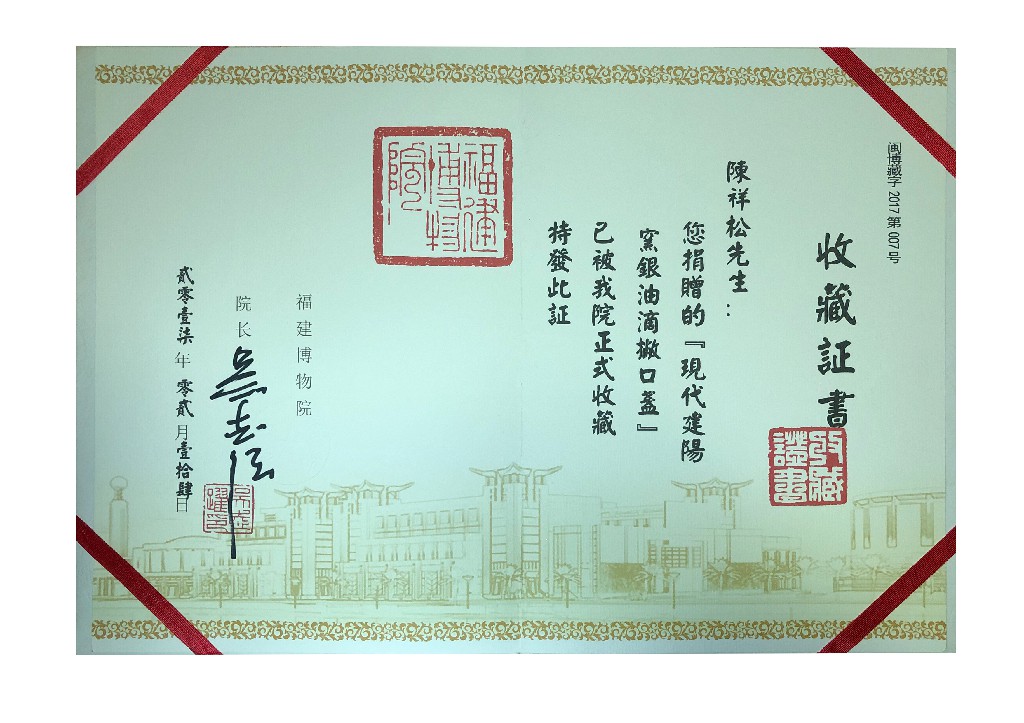 闽博藏字 2017 第 007 号
收藏証書
收藏
證書
陳祥松先生：
您捐贈的『現代建陽
窯銀油滴撇口盞』
已被我院正式收藏
持發此証
福建
博物
院
福建博物院
院长
貳零壹柒年零貳月壹拾肆日